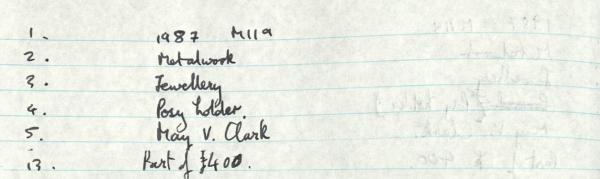 1. 1987 M119
2. Metalwork
3. Jewellery
4. Posy holder.
5. May V. Clark
13. Part of £400.